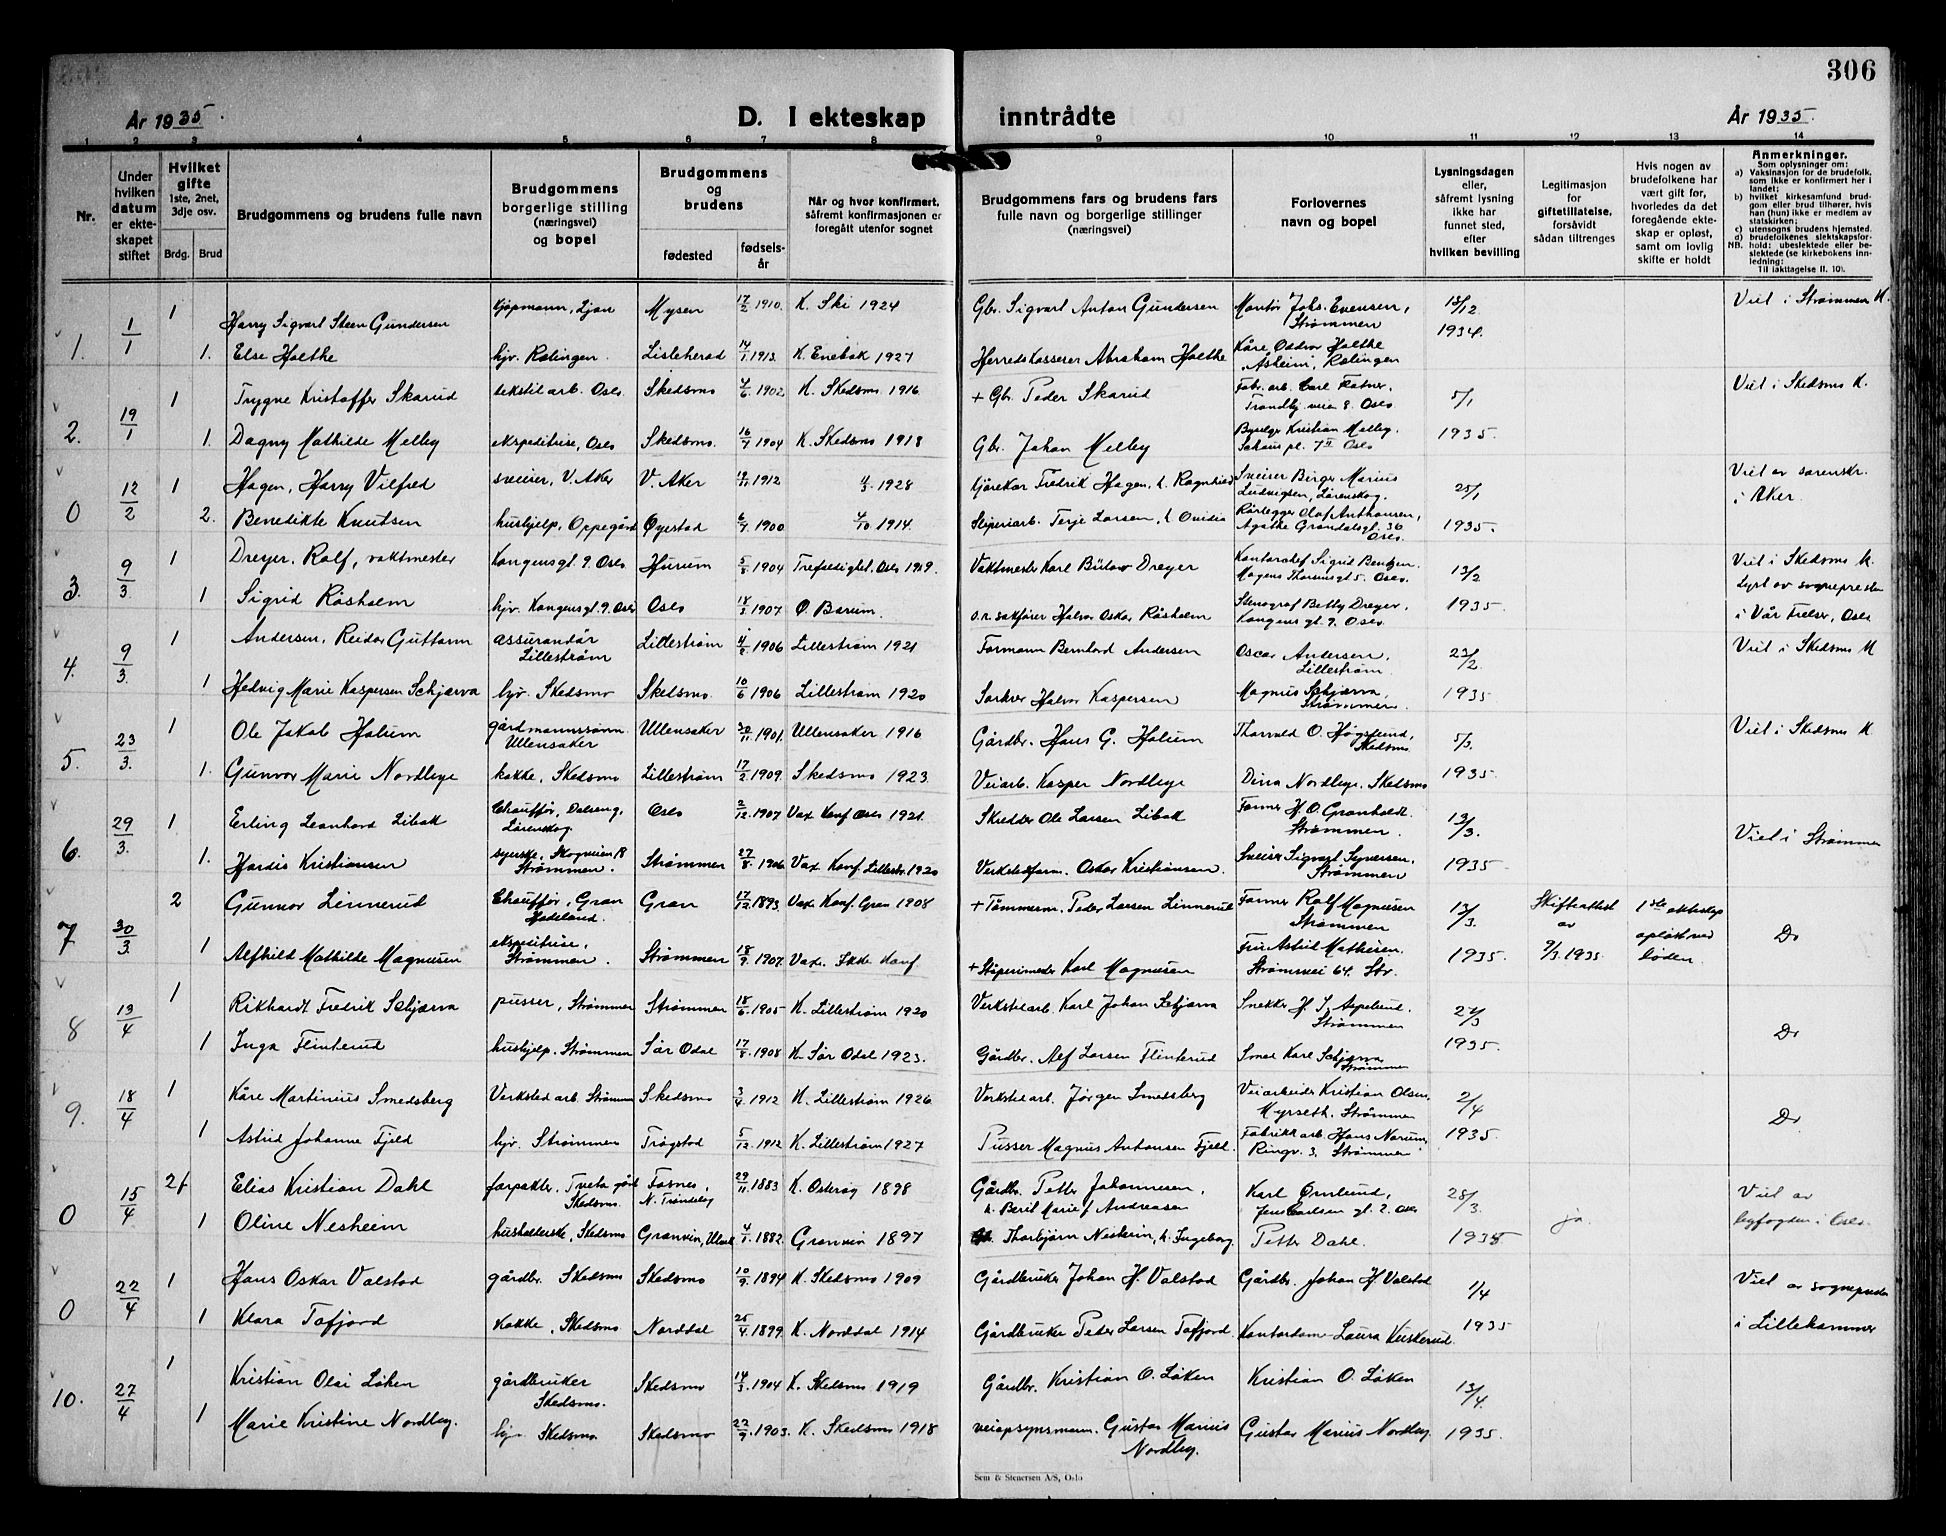 306
År 1935.
D. I ekteskap inntrådte
År 1935.
1 2 3 4 5 6 7 8 9 10 11 12 13 14
Nr.
Under hvilken datum er ekteskapet stiftet
Hvilket gifte 1ste, 2net, 3dje osv.
Brdg. Brud
Brudgommens og brudens fulle navn
Brudgommens borgerlige stilling (næringsvei) og bopel
Brudgommens og brudens
fødested
fødselsår
Når og hvor konfirmert, såfremt konfirmasjonen er foregått utenfor sognet
Brudgommens fars og brudens fars fulle navn og borgerlige stillinger (næringsvei)
Forlovernes navn og bopel
Lysningsdagen eller, såfremt lysning ikke har funnet sted, efter hvilken bevilling
Legitimasjon for giftetillatelse, forsåvidt sådan tiltrenges
Hvis nogen av brudefolkene har vært gift før, hvorledes da det foregående ekteskap er opløst, samt om lovlig skifte er holdt
Anmerkninger.
Som oplysninger om:
a) Vaksinasjon for de brudefolk, som ikke er konfirmert her i landet;
b) hvilket kirkesamfund brudgom eller brud tilhører, hvis han (hun) ikke er medlem av statskirken;
c) utensogns brudens hjemsted.
d) brudefolkenes slektskapsforhold: ubeslektede eller beslektede (se kirkebokens innledning;
NB. Til iakttagelse II. 10).
1. 1/1 1 Harry Sigvart Steen Gundersen kjøpmann, Ljan Mysen 17/2 1910. K. Ski 1924 Gbr. Sigvart Anton Gundersen Montør Johs. Evensen, Strømmen 15/12 1934. Viet i Strømmen K.
1. Else Holthe hjv. Rælingen. Lisleherad 14/1 1913. K. Enebak 1927 Herredskasserer Abraham Holthe Kåre Oddvar Holthe Åsheim, Rælingen
2. 19/1 1 Trygve Kristoffer Skarud tekstilarb. Oslo Skedsmo 4/6 1902. K. Skedsmo 1916 + Gbr. Peder Skarud Fabr. arb. Carl Ratner, Trondhj. veien 8. Oslo 5/1 1935. Viet i Skedsmo K.
1. Dagny Mathilde Melby ekspeditrise, Oslo Skedsmo. 16/7 1904 K. Skedsmo 1918 Gbr. Johan Melby Kristian Melby. Schous pl. 7 II Oslo
0 12/2 1 Hagen, Harry Vilfred sveiser, V. Aker V. Aker 19/11 1912 1928 Kjørekar Fredrik Hagen, h. Ragnhild Sveiser Birger Marius Ludvigsen, Lørenskog. 25/1 1935. Viet av sorenskr. i Aker.
2. Benedikte Knutsen hushjelp, Oppegård Øyestad 6/7 1900 4/10 1914. Sliperiarb. Terje Larsen, h. Ovidia Rørlegger Olaf Anthonsen, Agathe Grøndalsgt. 36 Oslo.
3. 9/3 1 Dreyer, Rolf, vaktmester Kongensgt. 9. Oslo Hurum 5/8 1904 Trefoldighet. Oslo 1919. Vaktmester Karl Bülow Dreyer Kontorchef Sigrid Bentzen. Mogens Thorsensgt 5. Oslo. 13/2 1935. Viet i Skedsmo K. Lyst av sognepresten i Vår Frelser, Oslo
1 Sigrid Råsholm hjv. Kongensgt. 9. Oslo Oslo 1907. Ø. Bærum. o.r. sakfører Halvor Oskar Råsholm Stenograf Betty Dreyer, Kongens gt. 9. Oslo.
4. 9/3. 1 Andersen, Reidar Guttorm assurandør Lillestrøm Lillestrøm 4/2. 1906 Lillestrøm 1921 Formann Bernhard Andersen Oscar Andersen, Lillestrøm. 23/2. 1935 Viet i Skedsmo K
1 Hedvig Marie Kaspersen Schjærva hjv. Skedsmo Skedsmo. 10/6 1906 Lillestrøm 1920 Halvor Kaspersen Magnus Schjærva, Strømmen.
5. 23/3. 1 Ole Jakob Holum gårdmannssønn Ullensaker Ullensaker 30/11 1901. Ullensaker 1916 Gårdbr. Hans G. Holum Thorvald O. Høgslund, Skedsmo 5/3. 1935. Viet i Skedsmo K
1. Gunvor Marie Nordbye kokke, Skedsmo Lillestrøm 17/2 1909. Skedsmo 1923. Veiarb. Kasper Nordbye Dina Nordbye, Skedsmo
6. 29/3. 1 Erling Leonhard Libak Chauffør, Lørenskog Oslo 2/12 1907 Vax Konf Oslo 1921. Skredder Ole Larsen Libak Former H. O. Granholdt. Strømmen. 13/3. 1935 Viet i Strømmen
1. Hardis Kristiansen syerske, Skogveien 18 Strømmen. Strømmen 27/8. 1906 Vax Konf. Lillestr. 1920 Verkstedform. Oskar Kristiansen. Sveiser Sigvart Syversen, Strømmen
7 30/3. 2 Gunnor Linnerud Chauffør, Gran Hadeland. Gran 17/12 1893. Vax. Konf. Gran 1908 + Tømmerm. Peder Larsen Linnerud Former Rolf Magnusen Strømmen 13/3. 1935. Skifteattest av 9/3. 1935 1ste ekteskap opløst ved døden. Do
1 Alfhild Mathilde Magnusen ekspeditrise, Strømmen. Strømmen 18/9. 1907. Vax. Ikke Konf + Støperimester Karl Magnusen Fru Astrid Mathisen. Strømsvei 64. Str.
8 13/4 1 Rikhardt Fredrik Schjærva pusser, Strømmen Strømmen 18/6 1905 K. Lillestrøm 1920 Verkstedarb. Karl Johan Schjærva Snekker H. J. Aspelund. Strømmen 27/3 1935. Do
1 Inga Flinterud hushjelp. Strømmen Sør Odal 17/8. 1908 K. Sør Odal 1923. Gårdbr. Alf Larsen Flinterud Smed Karl Schjærva Strømmen
9. 18/4 1 Kåre Martinius Smedsberg Verksted arb. Strømmen Skedsmo 3/4 1912 K. Lillestrøm 1926. Verkstedarb. Jørgen Smedsberg Veiarbeider Kristian Olsen, Myrseth. Strømmen 2/4 1935. Do
1 Astrid Johanne Fjeld hjv. Strømmen Trøgstad 5/12. 1912 K. Lillestrøm 1927 Pusser Magnus Antonsen Fjell Fabrikk arb. Hans Narum, Ringv. 3. Strømmen
0 15/4. 2 Elias Kristian Dahl forpakter, Tveter gård Skedsmo. Fosnes, N. Trøndelag 29/11. 1883 K. Osterøy 1898 Gårdbr. Petter Johannesen, h. Beril Marie f Andreasen Karl Ørnlund, Jens Carlsen gt. 2. Oslo 28/3. 1935 ja. Viet av byfogden i Oslo.
1 Oline Nesheim husholderske, Skedsmo Granvin, Ulvik 4/1. 1882. Granvin 1897 Thorbjørn Nesheim, h. Ingeborg. Petter Dahl.
0 22/4 1 Hans Oskar Valstad gårdbr. Skedsmo Skedsmo 10/9. 1894 K. Skedsmo 1909 Gårdbruker Johan H. Valstad Gårdbr. Johan H. Valstad 1/4 1935 Viet av sognepresten i Lillehammer
1 Klara Tafjord Kokke, Skedsmo Norddal 25/4. 1899. K. Norddal 1914 Gårdbruker Peder Larsen Tafjord. Kontordam. Laura Kuskerud.
10. 27/4 1 Kristian Olai Løken gårdbruker Skedsmo. Skedsmo 14/3. 1904 K. Skedsmo 1919 Gårdbr. Kristian O. Løken Kristian O. Løken 13/4. 1935.
1 Marie Kristine Nordby. hjv Skedsmo Skedsmo 22/9. 1903. K. Skedsmo 1918 veiopsynsmann. Gustav Marius Nordby. Gustav Marius Nordby
Sem & Stenersen A/S, Oslo